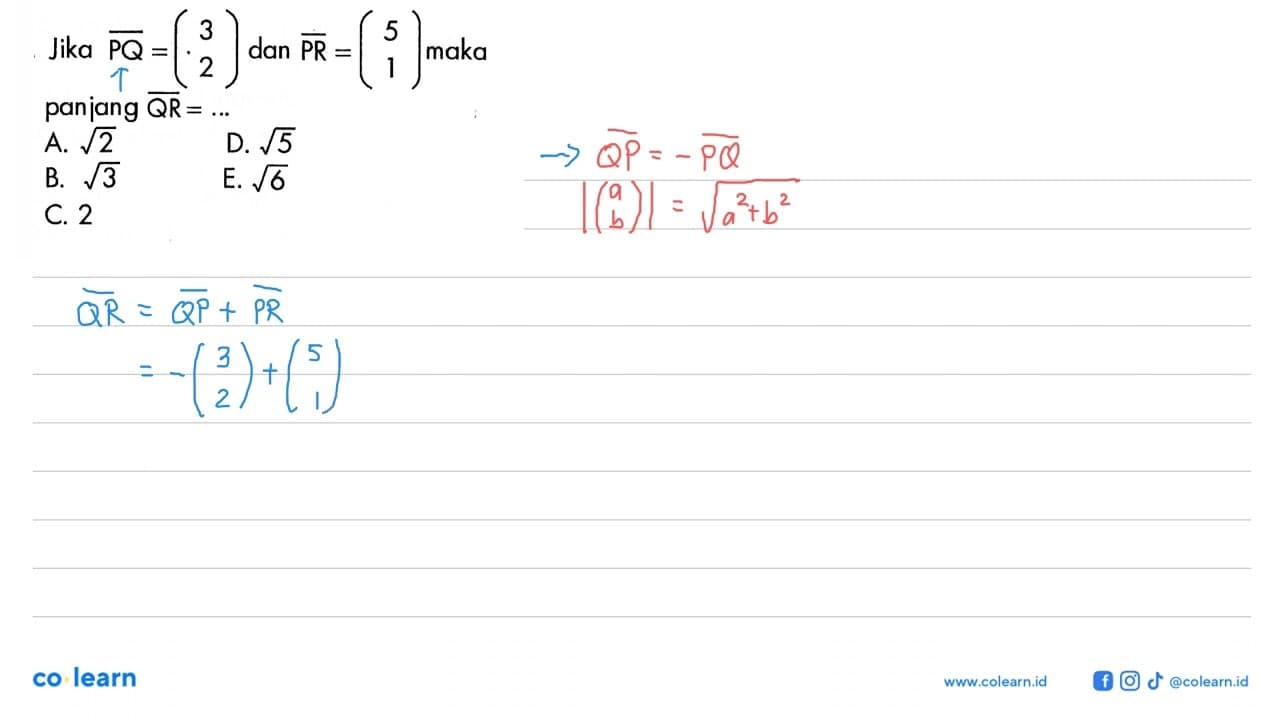 Jika PQ = (3 2) dan PR = (5 1) maka
panjang QR = ...
A. √2 D. √5
B. √3 E. √6
C. 2
→ QP = - PQ
|(a b)| = √a²+b²
QR = QP + PR
= -(3 2) + (5 1)
co·learn
www.colearn.id @colearn.id